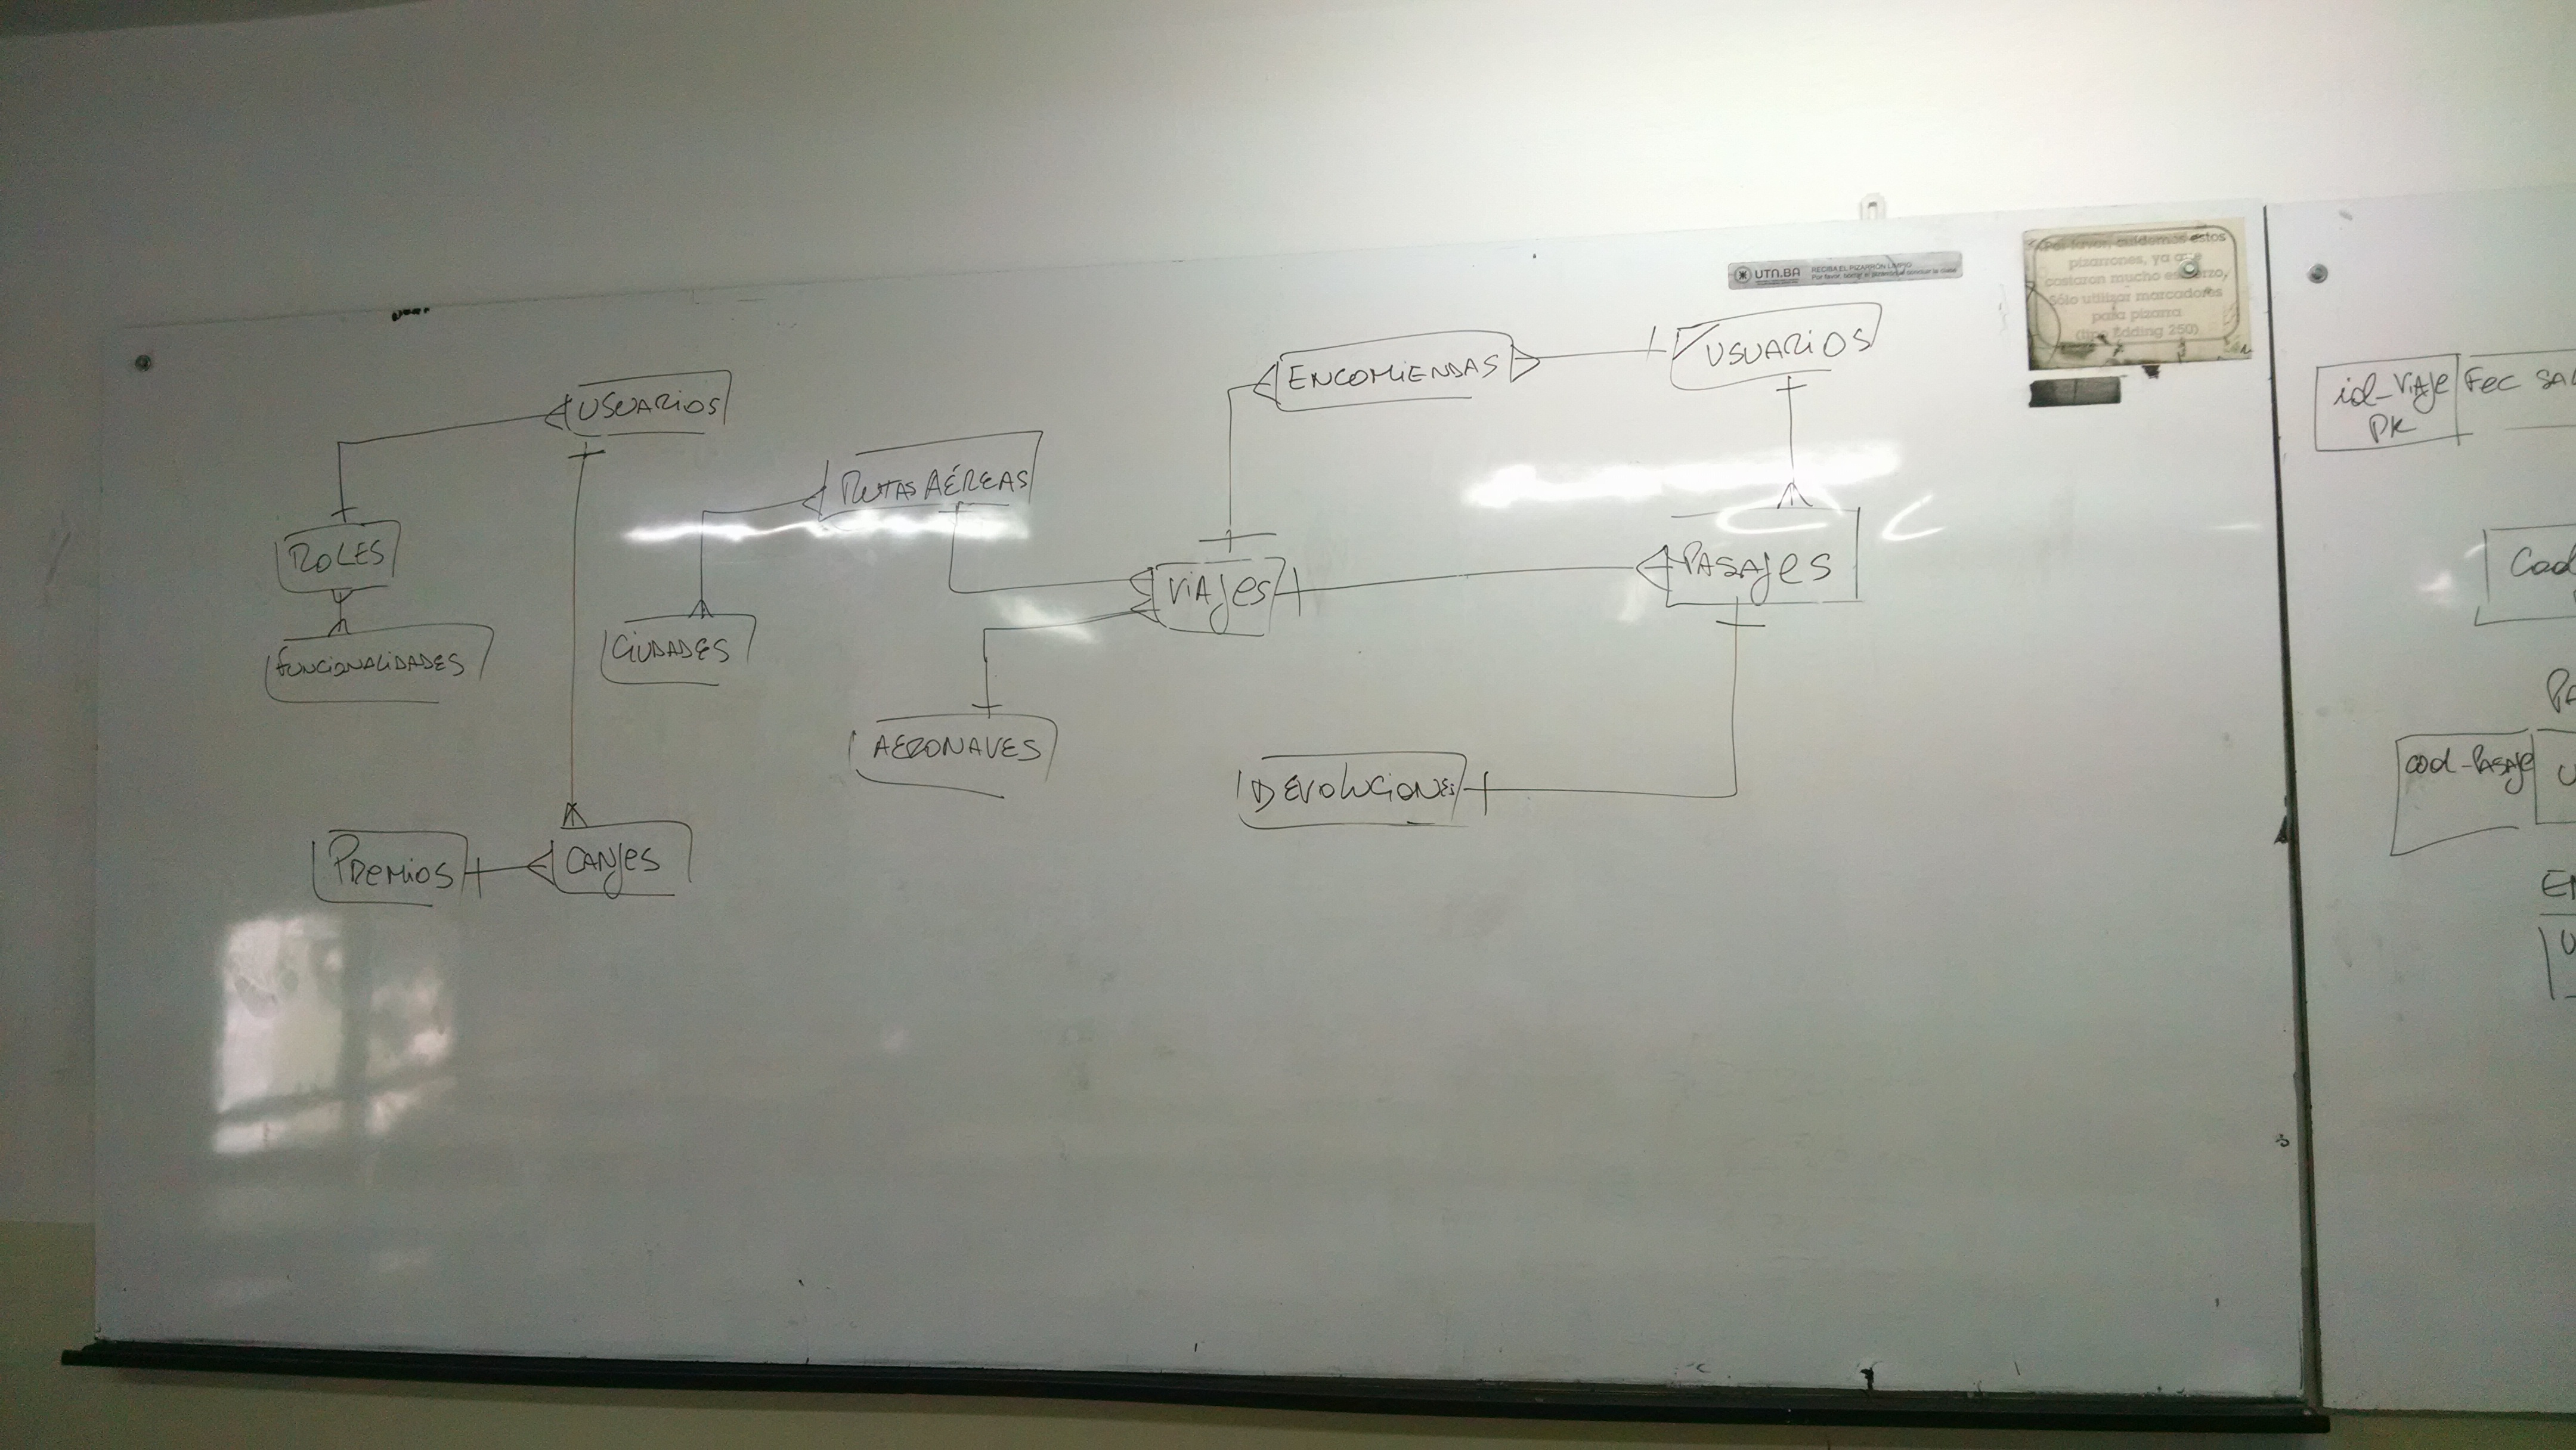 UTN.BA
RECIBA EL PIZARRÓN LIMPIO
Por favor, borrar el pizarrón al concluir la clase
Por favor, cuidemos estos
pizarrones, ya que
costaron mucho esfuerzo,
Sólo utilizar marcadores
para pizarra
(tipo Edding 250)
USUARIOS
ROLES
FUNCIONALIDADES
PREMIOS
CANJES
RUTAS AÉREAS
CIUDADES
AERONAVES
VIAJES
ENCOMIENDAS
USUARIOS
PASAJES
DEVOLUCIONES
id_VIAJE
PK
FEC SAL
Cod
PA
cod_PASAJE
U
EN
U